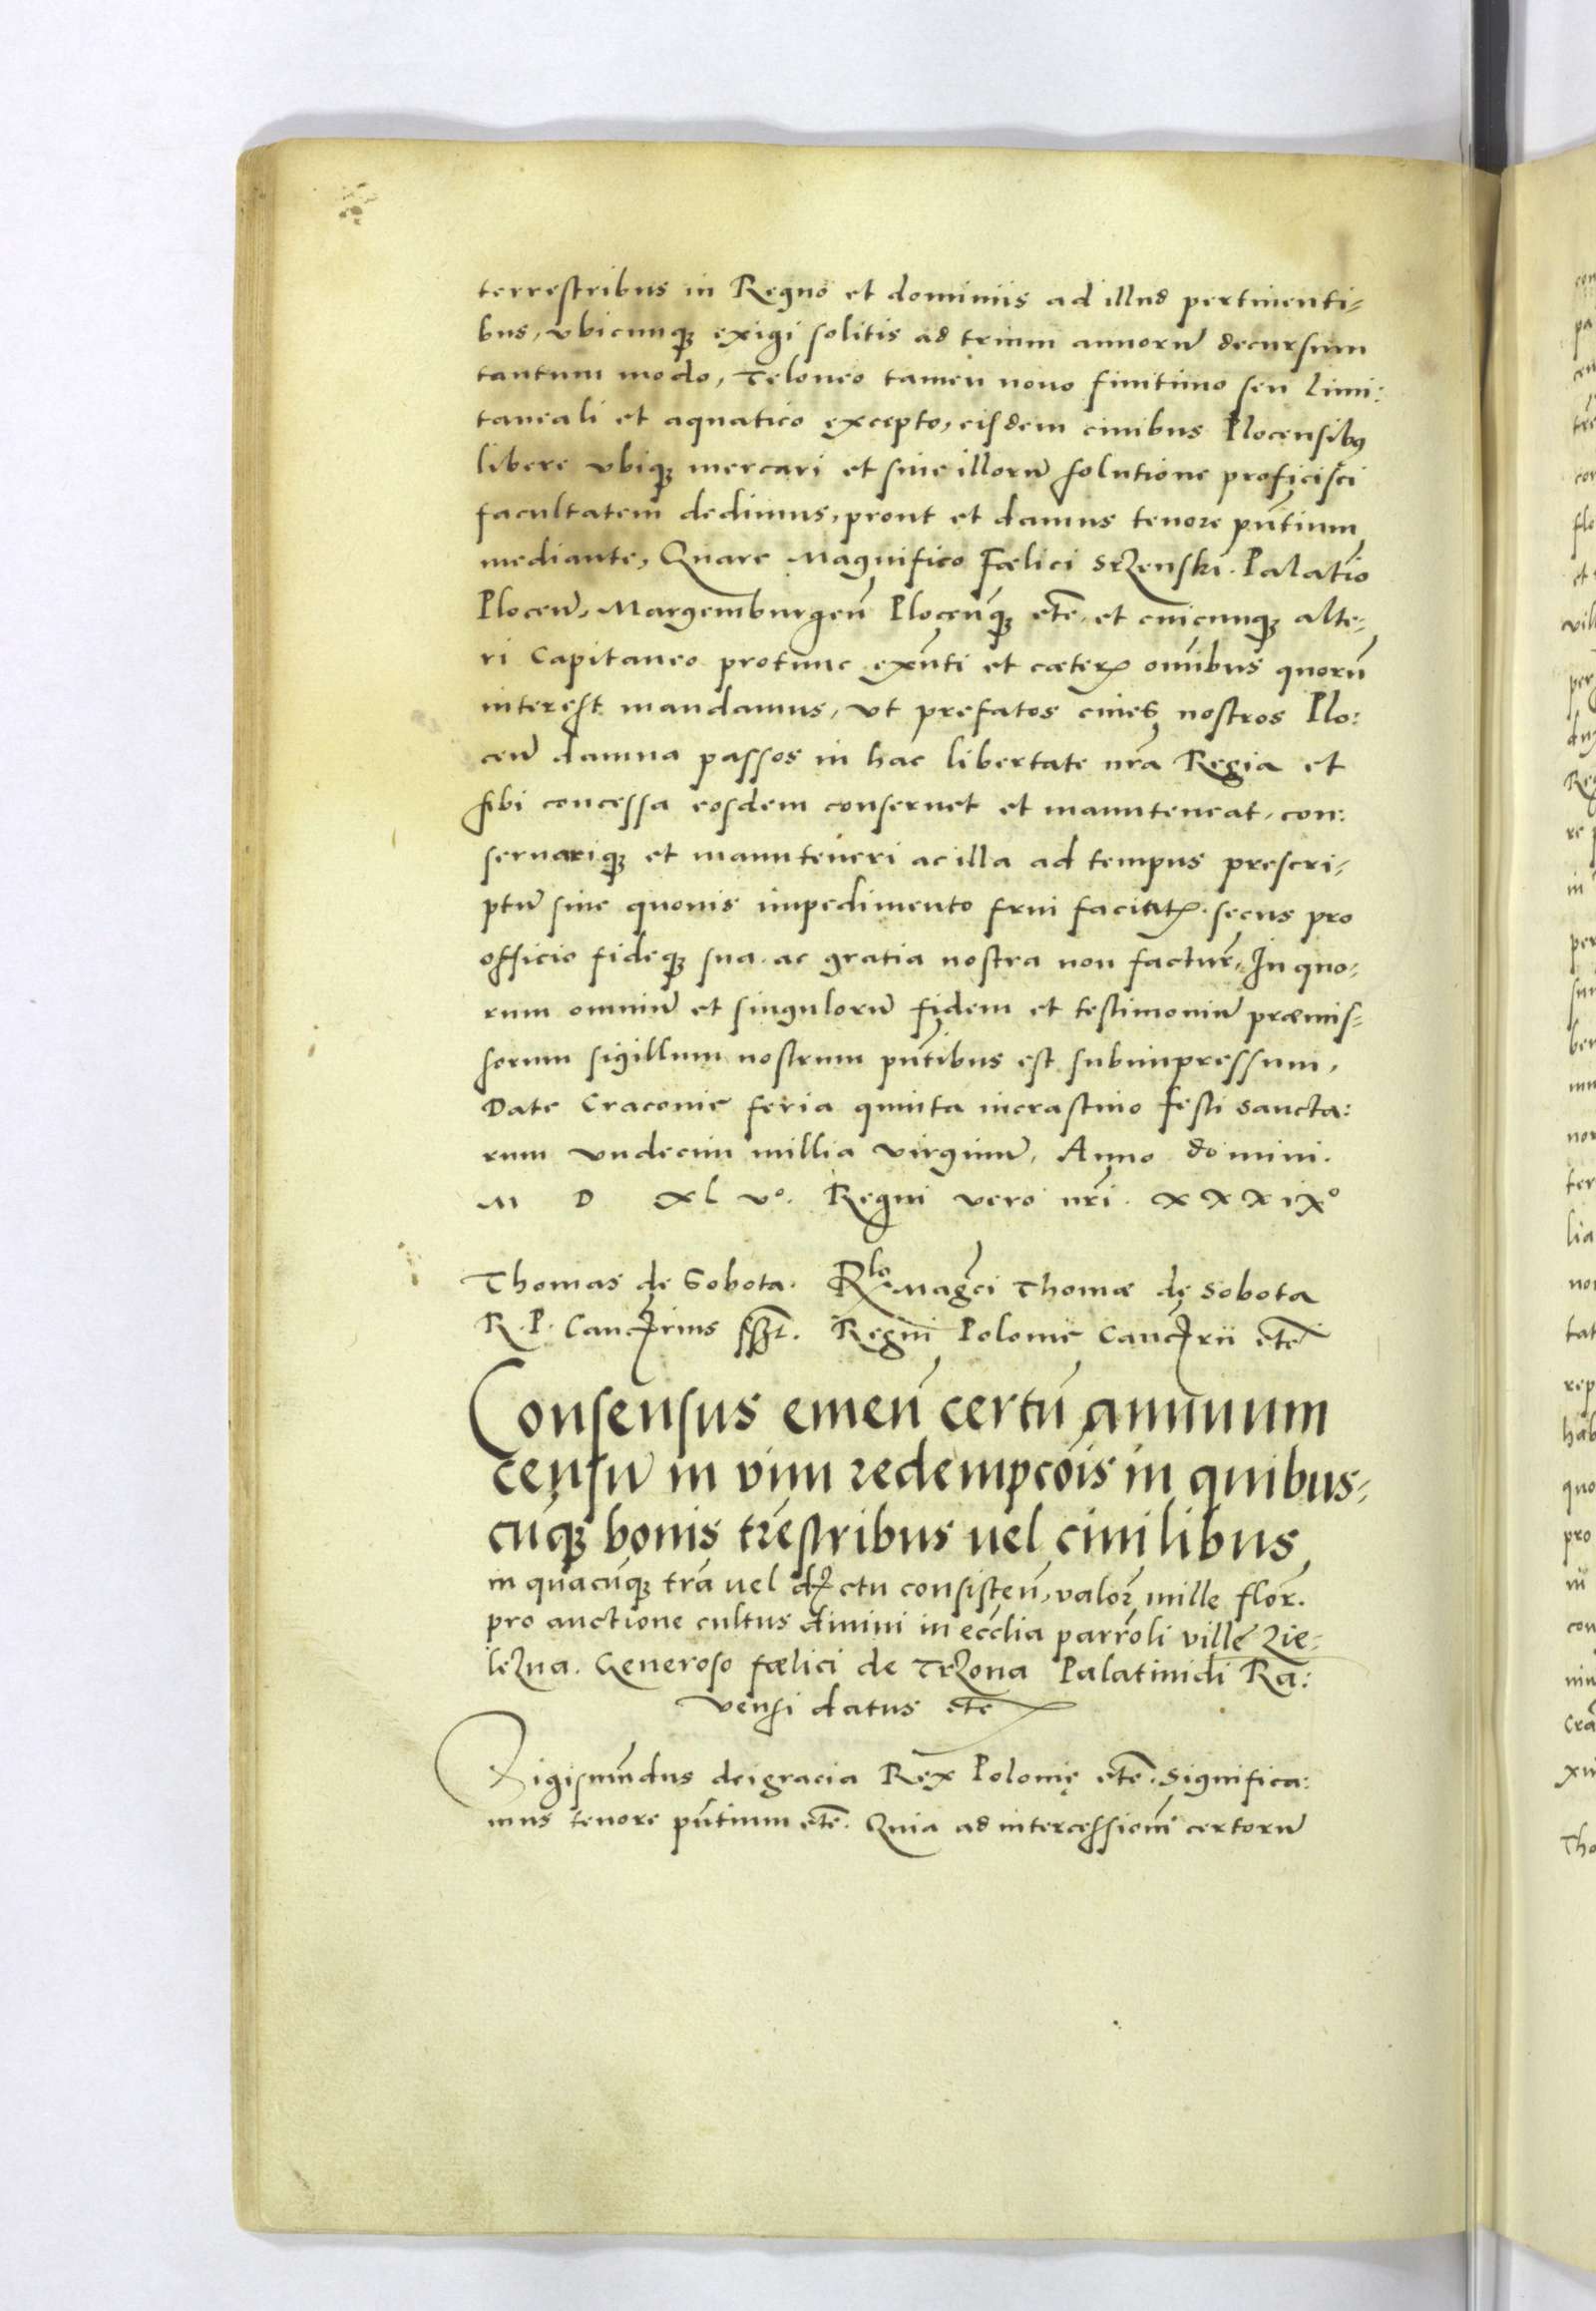 terrestribus in Regno et dominiis ad illud pertinenti-
bus, vbicunq3 exigi solitis ad trium annorũ decursum
tantum modo, Teloneo tamen nouo finitimo seu limi:
taneali et aquatico excepto, eisdem ciuibus Plocensibꝰ
libere vbiq3 mercari et sine illorũ solutione proficisci
facultatem dedimus, prout et damus tenore pñtium
mediante, Quare Magnifico Fœlici Srzenski. Palatĩo
Plocen̄, Margemburgen̄ Plocen̄q3 etc̃. et cuicunq3 alte-
ri Capitaneo protunc exñti et cæterꝭ omĩbus quorũ
interest mandamus, vt prefatos ciues nostros Plo:
cen̄ damna passos in hac libertate nr̃a Regia et
sibi concessa eosdem conseruet et manuteneat, con:
seruariq3 et manuteneri ac illa ad tempus prescri-
ptũ sine quouis impedimento frui faciatꝭ. secus pro
officio fideq3 sua. ac gratia nostra non factur̃. In quo-
rum omniũ et singulorũ fidem et testimoniũ præmis-
sorum sigillum nostrum pñtibus est subimpressum,
Date Cracouie feria quinta incrastino festi sancta:
rum vndecim millia virginũ, Anno domini.
M D xl vº. Regni vero nr̃i. xxxixº
Thomas de Sobota. Rlo Magc̃i Thomæ de Sobota
R. P. Cancꝝrius sszt. Regni Polonie Cancꝝrii etc̃
Consensus emen̄ certũ annuum
censũ in vim redempcõis in quibus-
cuq3 bonis tr̃estribus uel ciuilibus
in quacũq3 tr̃a uel dꝝctu consisten̄, valor̃ mille flor̃.
pro auctione cultus diuini in ecc̃lia parrõli ville Zie-
lezna. Generoso fœlici de Trzona Palatinidi Ra:
vensi datus etc̃
Sigismũndus deigracia Rex Polonię etc̃. Significa:
mus tenore pñtium etc̃. Quia ad intercessionẽ certorũ